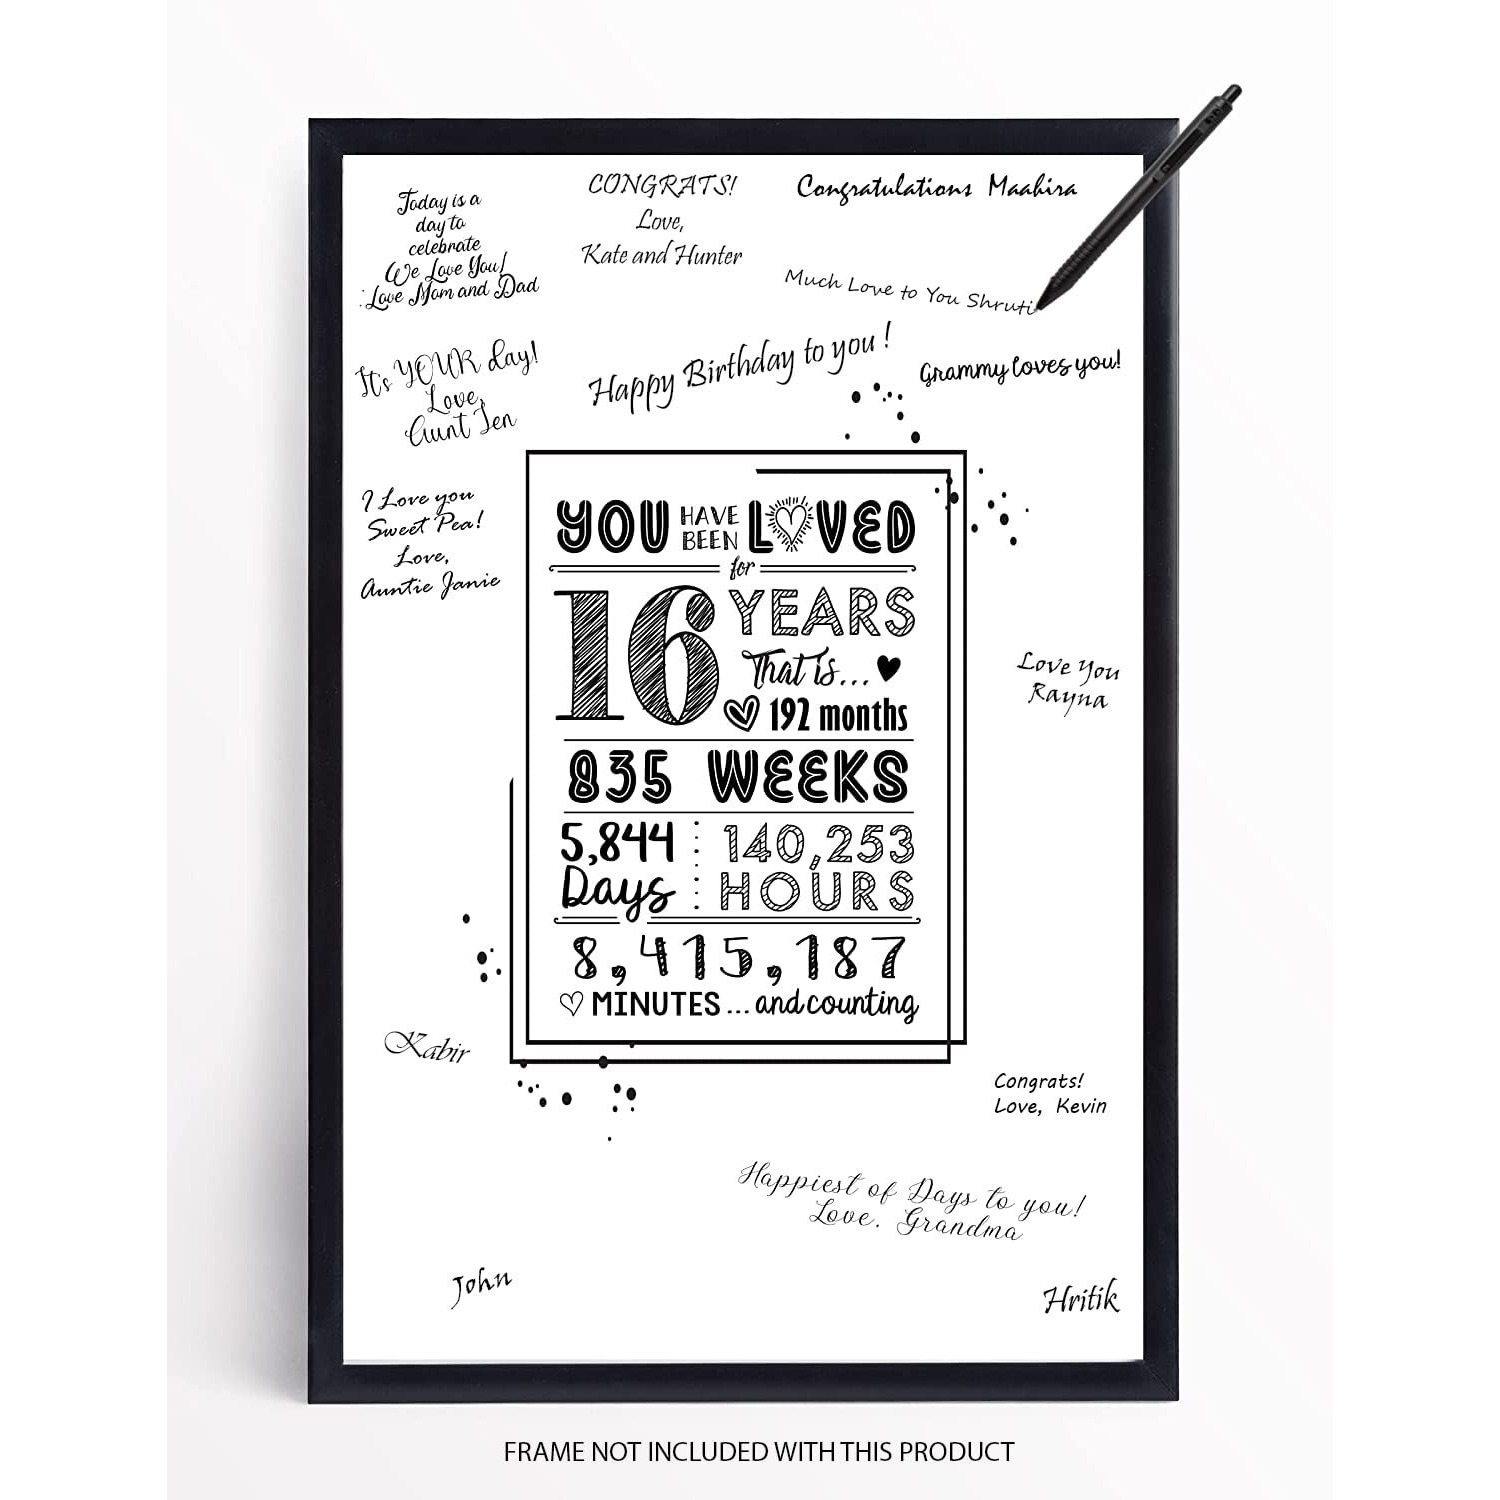 Today is a
day to
celebrate
We Love You!
Love Mom and Dad
CONGRATS!
Love,
Kate and Hunter
Congratulations Maahira
Much Love to You Shruti
It's YOUR day!
Love,
Aunt Jen
Happy Birthday to you!
Grammy loves you!
I Love you
Sweet Pea!
Love,
Auntie Janie
YOU HAVE BEEN LOVED
for
16 YEARS
That is...
192 months
835 WEEKS
5,844
Days
140,253
HOURS
8,415,187
MINUTES... and counting
Love You
Rayna
Kabir
Congrats!
Love, Kevin
Happiest of Days to you!
Love. Grandma
John
Hritik
FRAME NOT INCLUDED WITH THIS PRODUCT